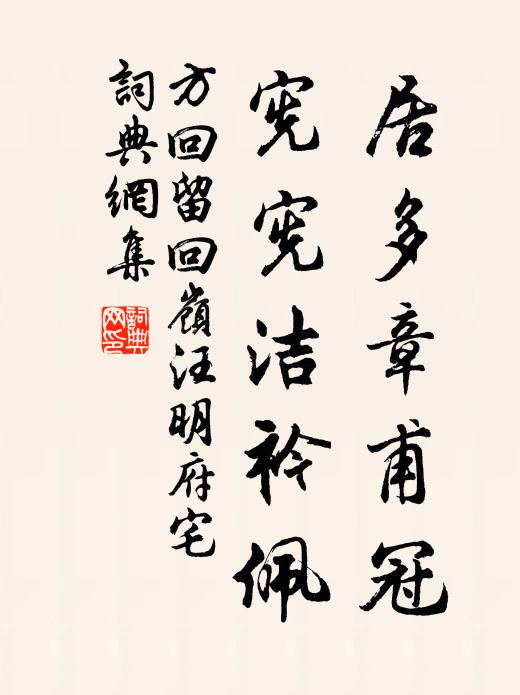 居多章甫冠
宪宪洁衿佩
方回留回嶺汪明府宅
詞典網集
詞典网印